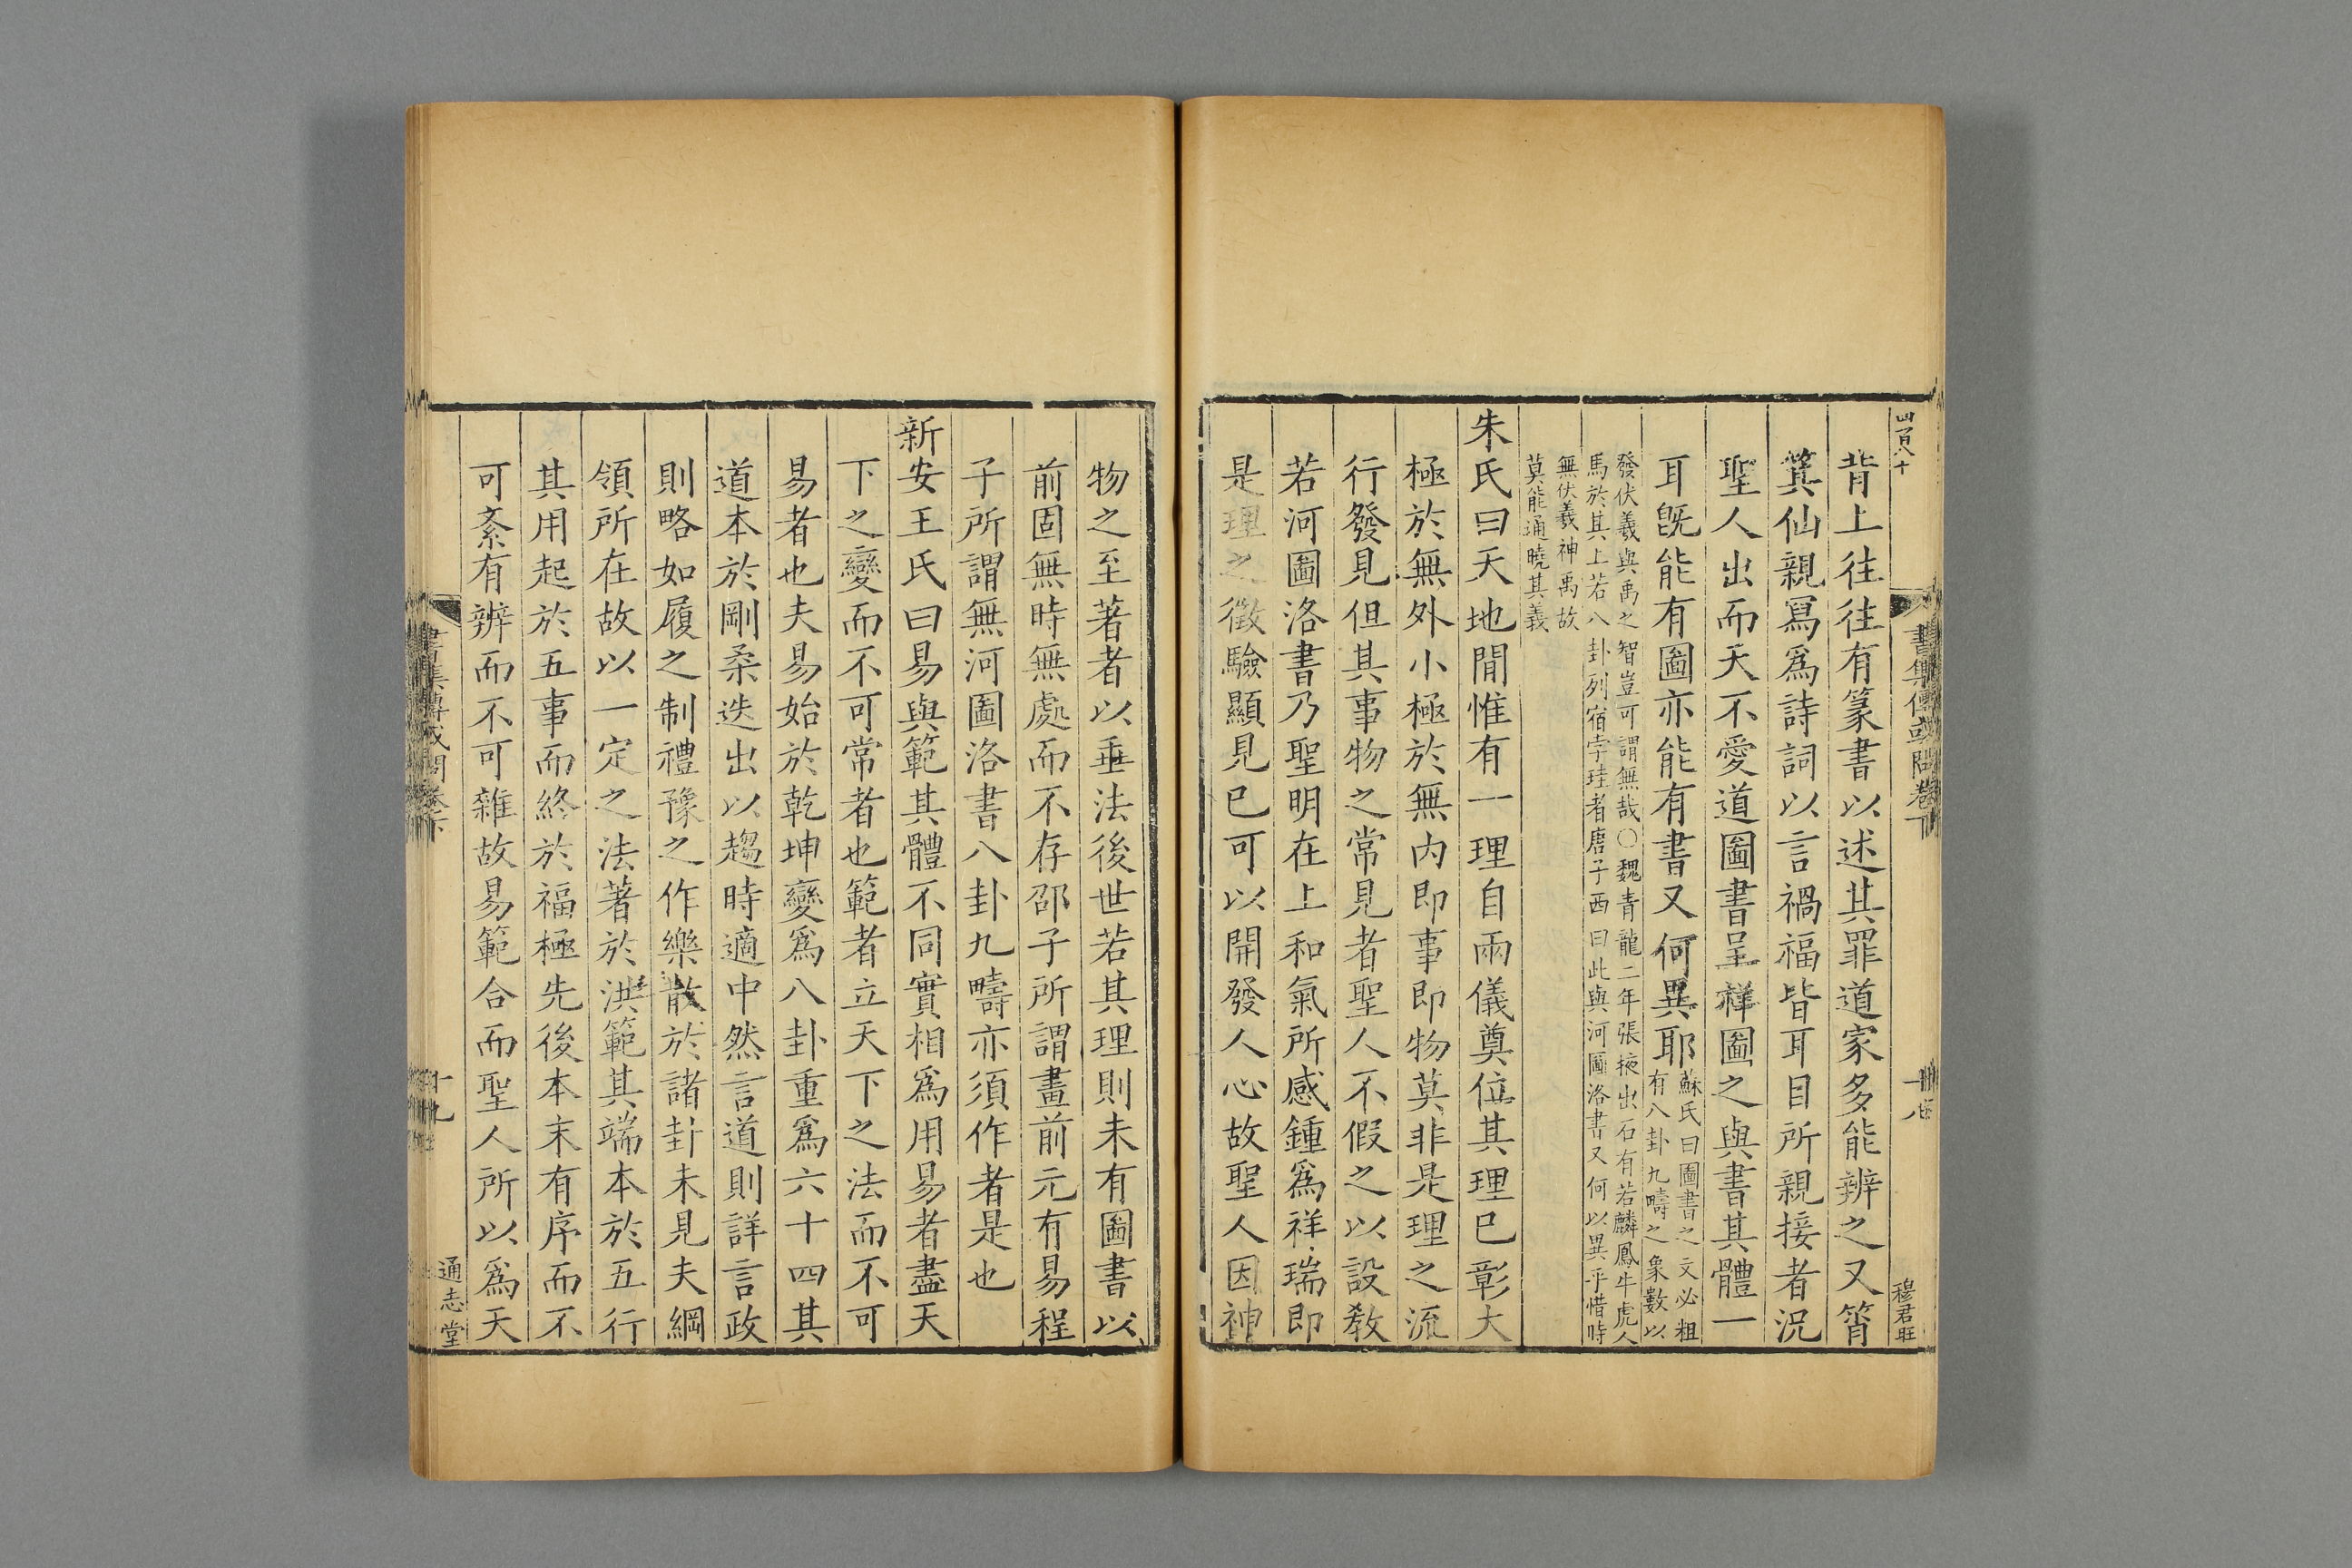 四百八十
書集傳或問卷下
十八
穆君旺
背上往往有篆書以述其罪道家多能辨之又箕
箕仙親寫爲詩詞以言禍福皆耳目所親接者況
聖人出而天不愛道圖書呈祥圖之與書其體一
耳旣能有圖亦能有書又何異耶
蘇氏曰圖書之文必粗
有八卦九疇之象數以
發伏羲與禹之智豈可謂無哉○魏青龍二年張掖出石有若麟鳳牛虎人
馬於其上若八卦列宿孛珪者唐子西曰此與河圖洛書又何以異乎惜時
無伏羲神禹故
莫能通曉其義
朱氏曰天地閒惟有一理自兩儀奠位其理已彰大
極於無外小極於無內即事即物莫非是理之流
行發見但其事物之常見者聖人不假之以設敎
若河圖洛書乃聖明在上和氣所感鍾爲祥瑞即
是理之徵驗顯見已可以開發人心故聖人因神
物之至著者以垂法後世若其理則未有圖書以
前固無時無處而不存邵子所謂畫前元有易程
子所謂無河圖洛書八卦九疇亦須作者是也
新安王氏曰易與範其體不同實相爲用易者盡天
下之變而不可常者也範者立天下之法而不可
易者也夫易始於乾坤變爲八卦重爲六十四其
道本於剛柔迭出以趨時適中然言道則詳言政
則略如履之制禮豫之作樂散於諸卦未見夫綱
領所在故以一定之法著於洪範其端本於五行
其用起於五事而終於福極先後本末有序而不
可紊有辨而不可雜故易範合而聖人所以爲天
書集傳或問卷下
十九
通志堂